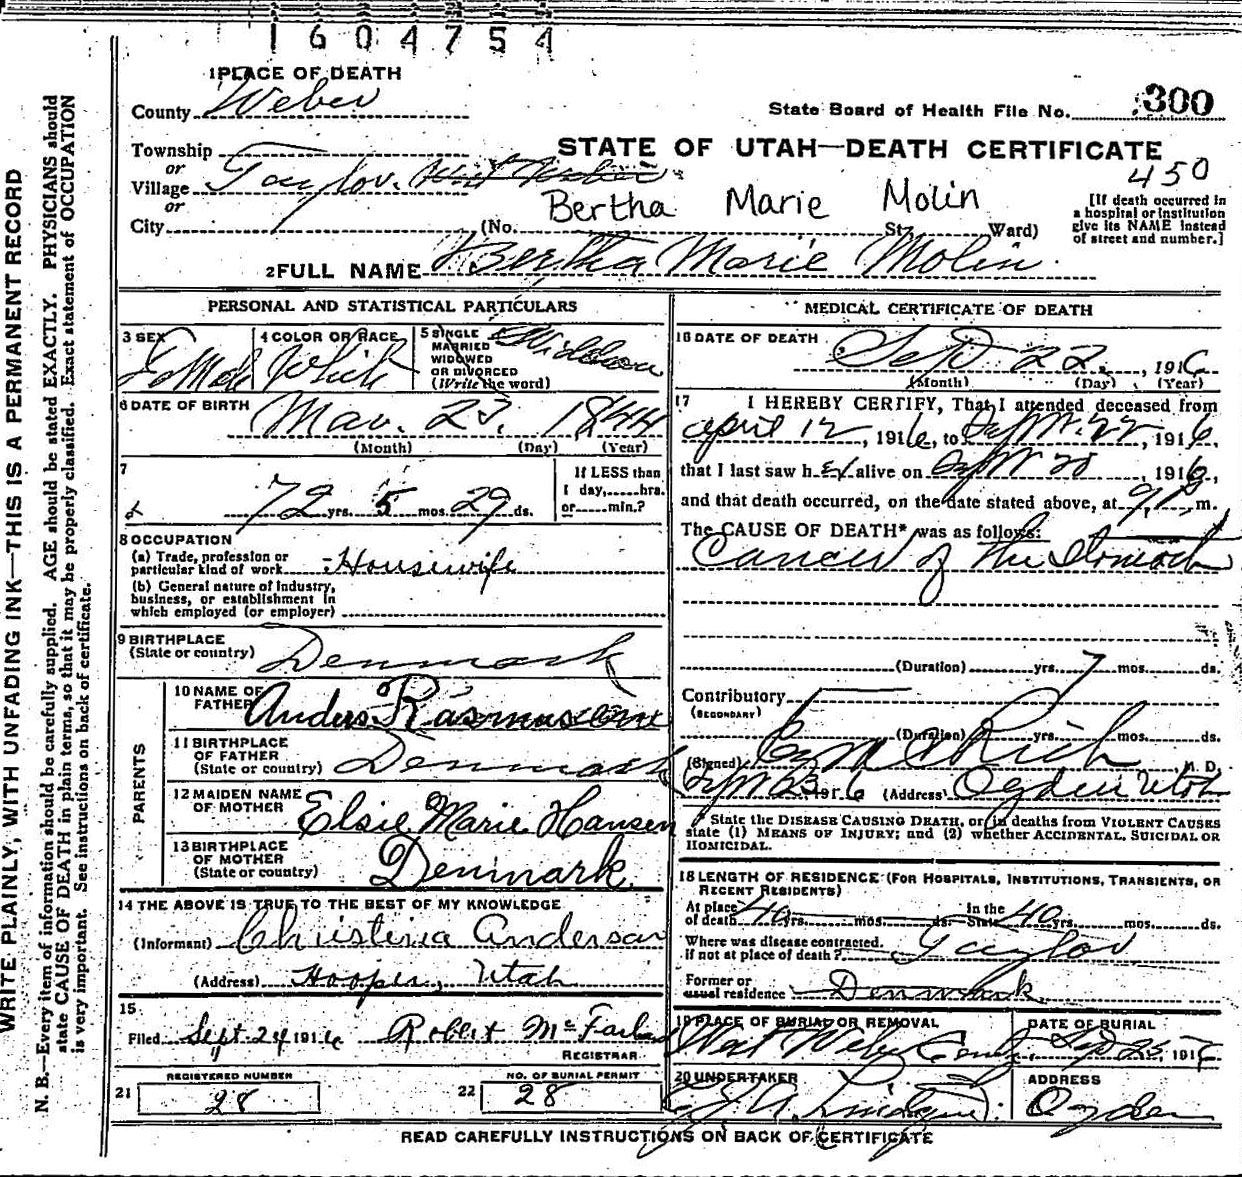 1604754
1 PLACE OF DEATH
County Weber
State Board of Health File No. 300
Township
or
Village Taylor. West Weber
or
City
STATE OF UTAH—DEATH CERTIFICATE
450
[If death occurred in a hospital or institution give its NAME instead of street and number.]
Bertha Marie Molin
(No. St. Ward)
2 FULL NAME Bertha Marie Molin
PERSONAL AND STATISTICAL PARTICULARS
3 SEX Female
4 COLOR OR RACE White
5 SINGLE MARRIED WIDOWED OR DIVORCED (Write the word) Widdow
6 DATE OF BIRTH Mar. 23, 1844
(Month) (Day) (Year)
7
72 yrs. 5 mos. 29 ds.
If LESS than 1 day, hrs. or min.?
8 OCCUPATION
(a) Trade, profession or particular kind of work Housewife
(b) General nature of industry, business, or establishment in which employed (or employer)
9 BIRTHPLACE
(State or country) Denmark
PARENTS
10 NAME OF FATHER Anders Rasmussen
11 BIRTHPLACE OF FATHER
(State or country) Denmark
12 MAIDEN NAME OF MOTHER Elsie Marie Hansen
13 BIRTHPLACE OF MOTHER
(State or country) Denmark.
14 THE ABOVE IS TRUE TO THE BEST OF MY KNOWLEDGE
(Informant) Christina Anderson
(Address) Hooper, Utah
15
Filed Sept. 24 1916 Robert McFarland
REGISTRAR
REGISTERED NUMBER
21 28
NO. OF BURIAL PERMIT
22 28
MEDICAL CERTIFICATE OF DEATH
16 DATE OF DEATH
Sept 22, 1916
(Month) (Day) (Year)
17 I HEREBY CERTIFY, That I attended deceased from
april 12, 1916, to Sept. 22 1916,
that I last saw her alive on Sept 20, 1916,
and that death occurred, on the date stated above, at 9 P. m.
The CAUSE OF DEATH* was as follows:
Cancer of the Stomach
(Duration) yrs. 7 mos. ds.
Contributory
(SECONDARY)
(Duration) yrs. mos. ds.
(Signed) Rich M. D.
Sept 23, 1916 (Address) Ogden Utah
State the DISEASE CAUSING DEATH, or, in deaths from VIOLENT CAUSES state (1) MEANS OF INJURY; and (2) whether ACCIDENTAL, SUICIDAL OR HOMICIDAL.
18 LENGTH OF RESIDENCE (FOR HOSPITALS, INSTITUTIONS, TRANSIENTS, OR RECENT RESIDENTS)
At place of death 40 yrs. mos. ds. In the State 40 yrs. mos. ds.
Where was disease contracted, if not at place of death? Taylor
Former or usual residence Denmark
19 PLACE OF BURIAL OR REMOVAL
West Weber Cemty.
DATE OF BURIAL
Sept 25, 1916
20 UNDERTAKER
ADDRESS
Ogden
READ CAREFULLY INSTRUCTIONS ON BACK OF CERTIFICATE
WRITE PLAINLY, WITH UNFADING INK—THIS IS A PERMANENT RECORD
N. B.—Every item of information should be carefully supplied. AGE should be stated EXACTLY. PHYSICIANS should
state CAUSE OF DEATH in plain terms, so that it may be properly classified. Exact statement of OCCUPATION
is very important. See instructions on back of certificate.